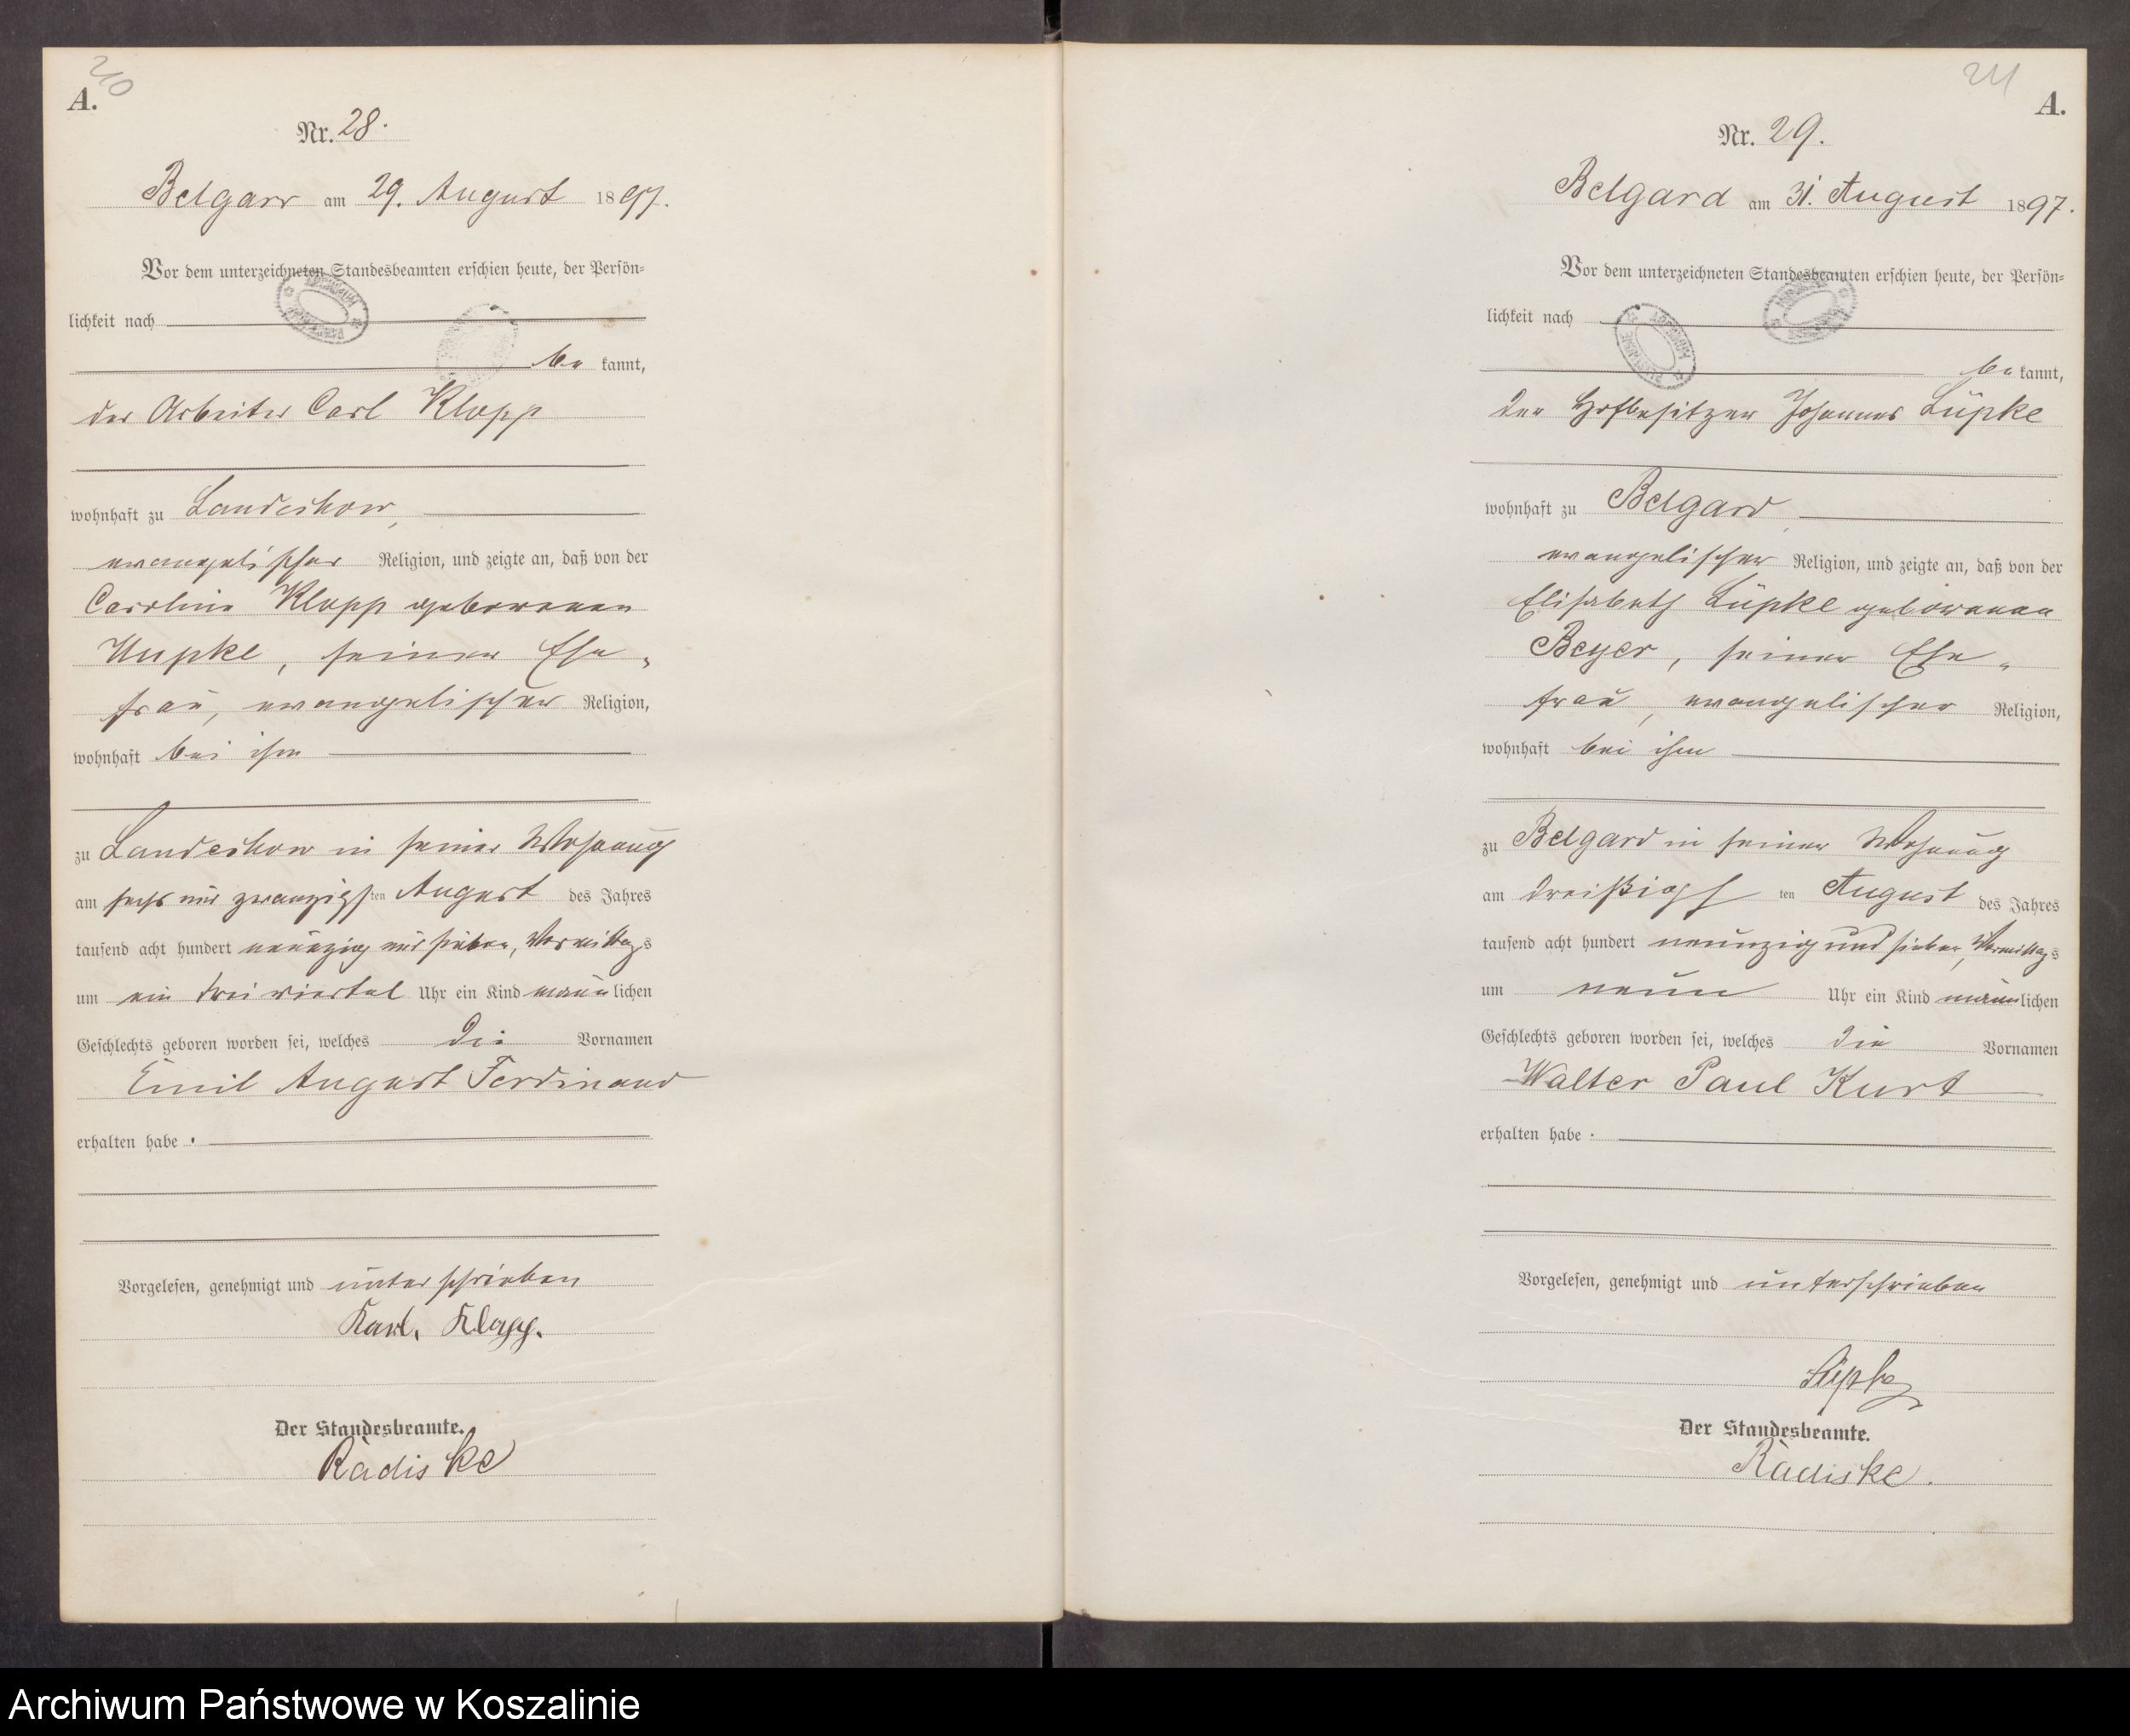 210
A.
Nr. 28.
Belgard am 29. August 1897.
Vor dem unterzeichneten Standesbeamten erschien heute, der Persön-
lichkeit nach
be kannt,
der Arbeiter Carl Klopp
wohnhaft zu Landechow,
evangelischer Religion, und zeigte an, daß von der
Caroline Klopp geborenen
Kupke, seiner Ehe-
frau, evangelischer Religion,
wohnhaft bei ihm
zu Landechow in seiner Wohnung
am sechs und zwanzigsten August des Jahres
tausend acht hundert neunzig und sieben, Vormittags
um ein drei viertel Uhr ein Kind männlichen
Geschlechts geboren worden sei, welches die Vornamen
Emil August Ferdinand
erhalten habe.
Vorgelesen, genehmigt und unterschrieben
Karl. Klopp.
Der Standesbeamte.
Radiske
211
A.
Nr. 29.
Belgard am 31. August 1897.
Vor dem unterzeichneten Standesbeamten erschien heute, der Persön-
lichkeit nach
be kannt,
der Hofbesitzer Johannes Lüpke
wohnhaft zu Belgard,
evangelischer Religion, und zeigte an, daß von der
Elisabeth Lüpke geborenen
Beyer, seiner Ehe-
frau, evangelischer Religion,
wohnhaft bei ihm
zu Belgard in seiner Wohnung
am dreißigsten August des Jahres
tausend acht hundert neunzig und sieben, Vormittags
um neun Uhr ein Kind männlichen
Geschlechts geboren worden sei, welches die Vornamen
Walter Paul Kurt
erhalten habe.
Vorgelesen, genehmigt und unterschrieben
Lüpke
Der Standesbeamte.
Radiske.
Archiwum Państwowe w Koszalinie